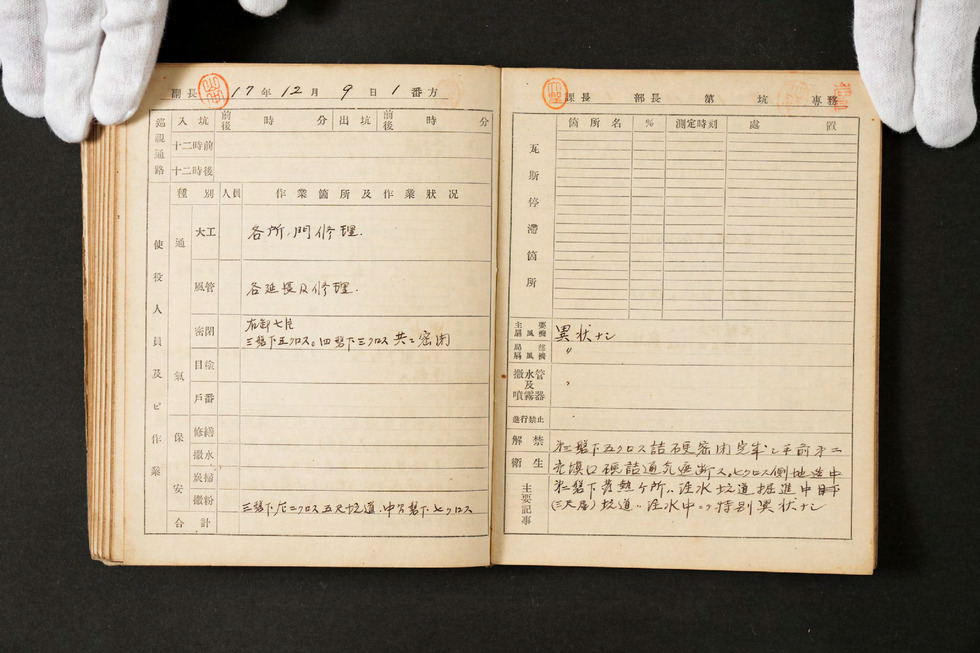 副長 17年12月9日1番方
巡視通路
入坑 前後 時 分 出坑 前後 時 分
十二時前
十二時後
種別 人員 作業箇所及作業狀況
使役人員及ビ作業
通氣
大工 各所ノ門修理.
風管 各延長及修理.
密閉 右卸七片
三盤下五クロス。四盤下三クロス共ニ密閉
目塗
戶番
保安
修繕
撒水
炭掃
撒粉 三盤下左二クロス五尺坑道.中万盤下七クロス
合計
課長 部長 第 坑 專務
箇所名 % 測定時刻 處置
瓦斯停滯箇所
主要扇風機 異状ナシ
局部扇風機 〃
撒水管及噴霧器 〃
進行禁止
解禁
衛生
主要記事
第二盤下五クロス詰硬密閉完成シ手前第二
充塡口硬詰通気遮断ス。七クロス側地造中
第二盤下発熱ヶ所ハ注水坑道掘進中
(三尺層)坑道ハ注水中ニテ特別異状ナシ